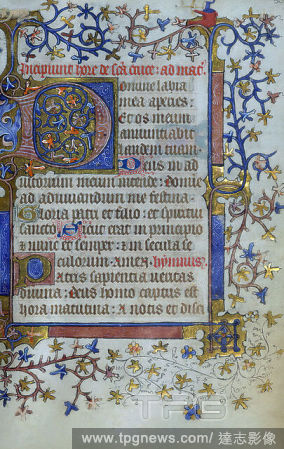 Incipiunt hore de sc̄a cruce: ad mat̄.
Domine labia
mea aperies:
Et os meum
annuntiabit
laudem tuam.
Deus in ad
iutorium meum intende: Domine
ad adiuvandum me festina.
Gloria patri et filio: et spiritui
sancto. Sicut erat in principio
et nunc et semper: et in secula se
culorum. Amen. hymnus.
Patris sapientia veritas
divina: deus homo captus est
hora matutina: a notis et disci
TPG
www.tpgnews.com/ 達志影像